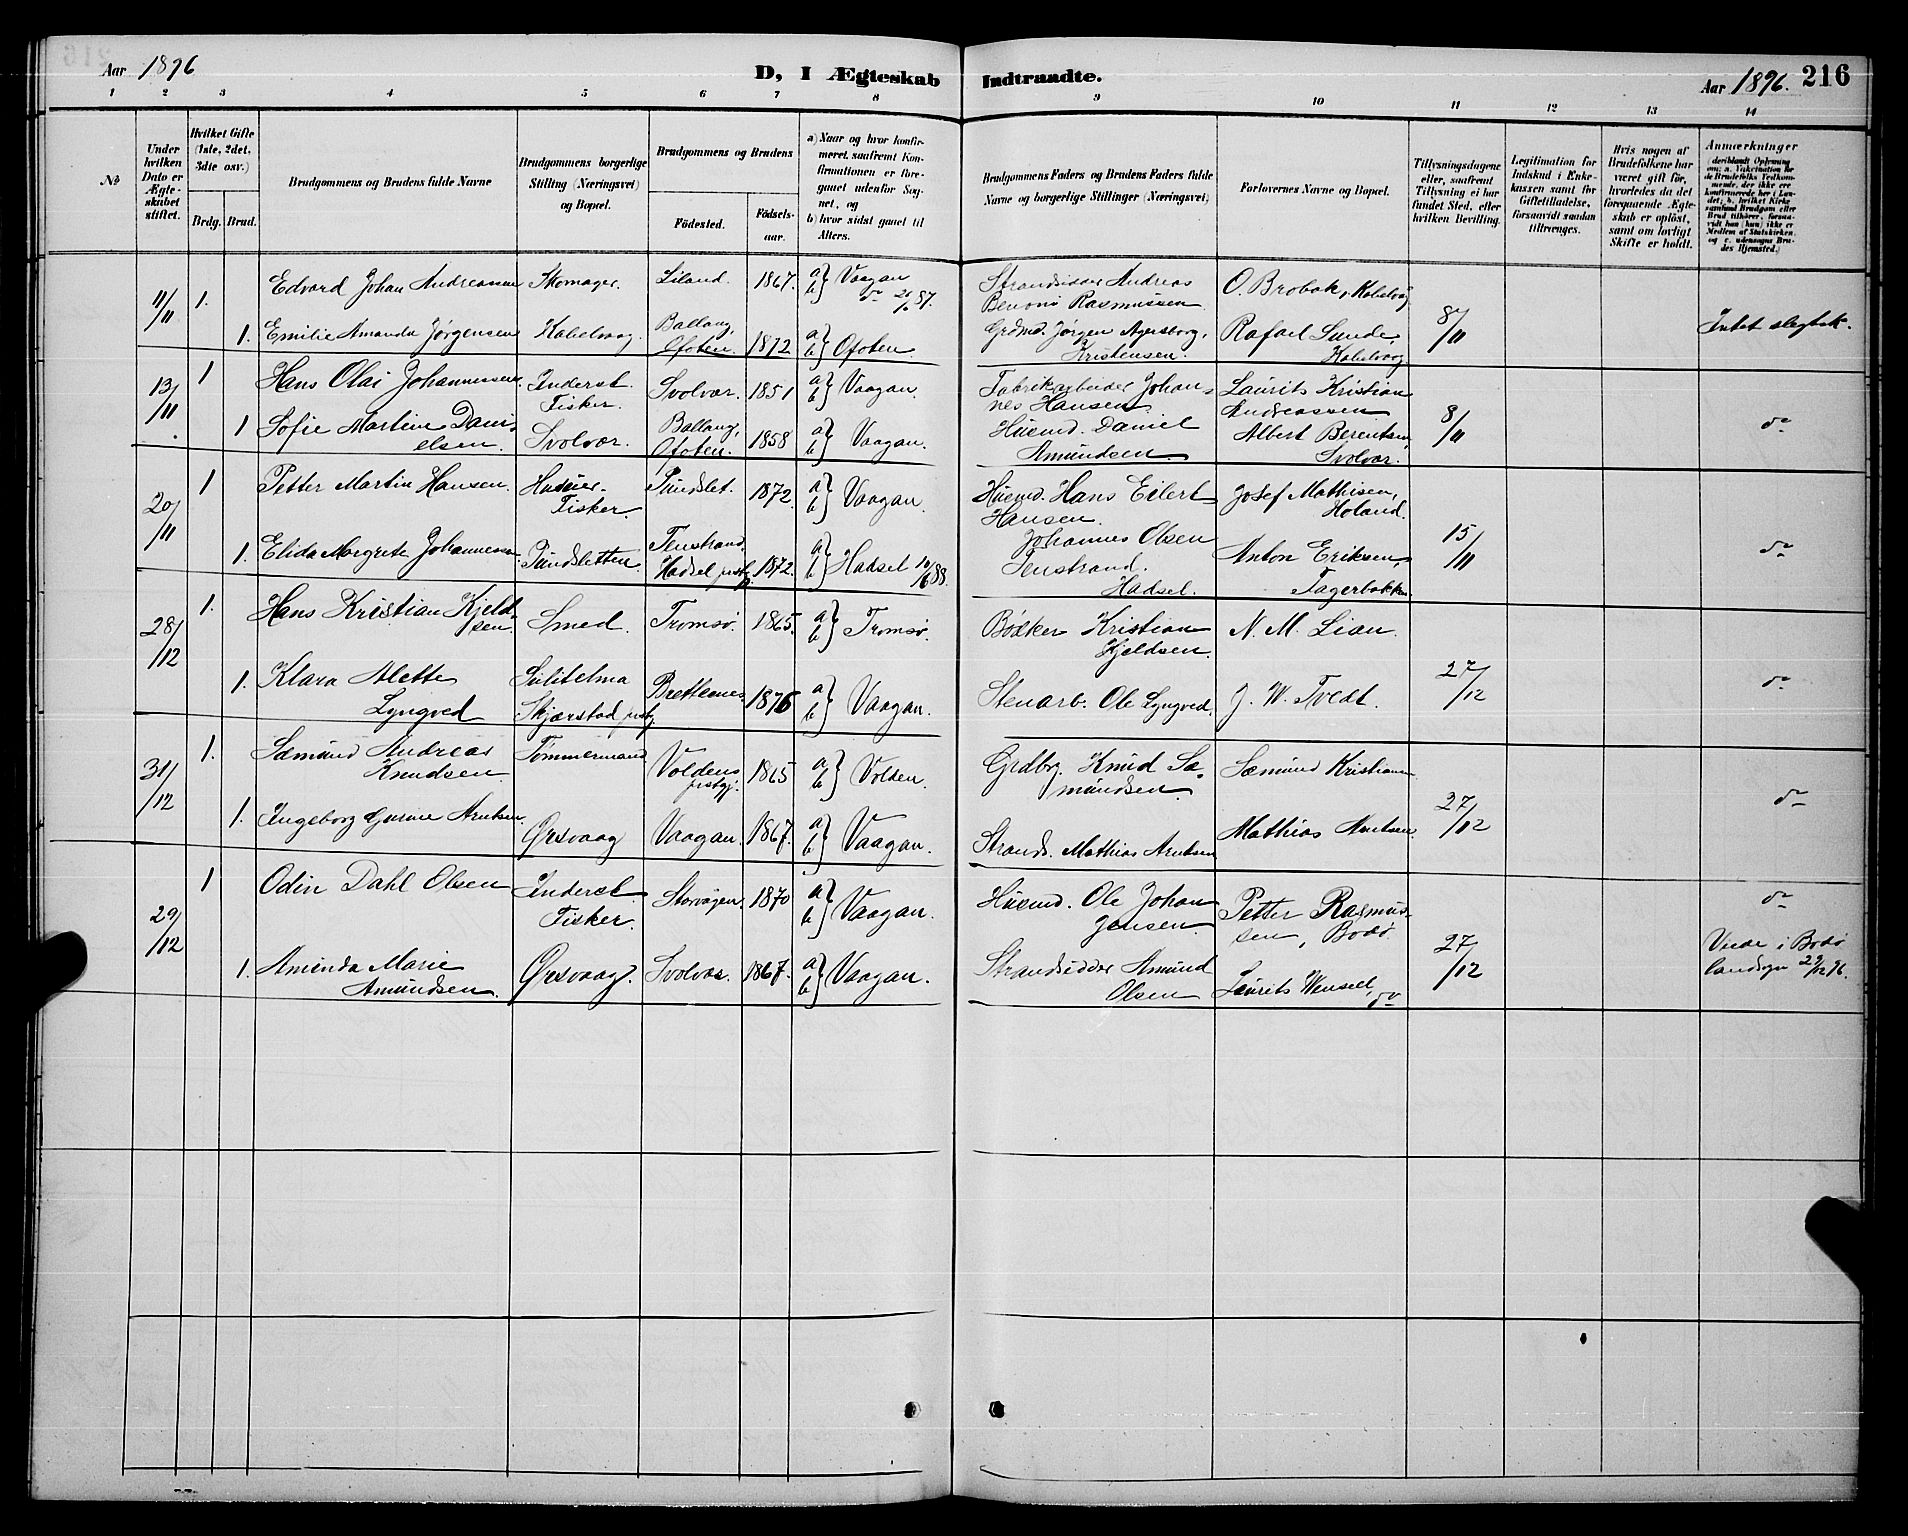 Aar 1896
D, I Ægteskab Indtraadte.
Aar 1896. 216
1 2 3 4 5 6 7 8 9 10 11 12 13 14
№
Under hvilken Dato er Ægteskabet stiftet.
Hvilket Gifte (1ste, 2det, 3die osv.)
Brdg. Brud.
Brudgommens og Brudens fulde Navne
Brudgommens borgerlige Stilling (Næringsvei) og Bopæl.
Brudgommens og Brudens
Fødested.
Fødsels-aar.
a) Naar og hvor konfirmeret, saafremt Konfirmationen er foregaaet udenfor Sognet, og
b) hvor sidst gaaet til Alters.
Brudgommens Faders og Brudens Faders fulde Navne og borgerlige Stillinger (Næringsvei)
Forlovernes Navne og Bopæl.
Tillysningsdagene eller, saafremt Tillysning ei har fundet Sted, efter hvilken Bevilling.
Legitimation for Indskud i Enkekassen samt for Giftetilladelse, forsaavidt saadan tiltrænges.
Hvis nogen af Brudefolkene har været gift før, hvorledes da det foregaaende Ægteskab er opløst, samt om lovligt Skifte er holdt.
Anmærkninger
11/11 1. Edvard Johan Andreassen Skomager. Liland. 1867. a) b) Vaagan do 87. Strandsidder Andreas Benoni Rasmussen O. Brobak, Kabelvåg 8/11 Intet slegtsk.
1. Emilie Amanda Jørgensen Kabelvaag. Ballang, Ofoten. 1872 a) b) Ofoten. Grdmd. Jørgen Agersborg, Kristensen. Rafael Sunde, Kabelvaag
13/11 1 Hans Olai Johannessen. Inderst. Fisker. Svolvær. 1851 a) b) Vaagan. Fabrikarbeider Johannes Hansen Laurits Kristian Andreassen 8/11 do
1 Sofie Martine Danielsen. Svolvær. Ballang, Ofoten. 1858 a) b) Vaagan. Husmd. Daniel Amundsen Albert Berentsen, Svolvær.
20/11 1 Petter Martin Hansen. Fisker. Pundslet. 1872. a) b) Vaagan. Husmd. Hans Eilert Hansen. Josef Mathisen, Holand. 15/11 do
1. Elida Margrete Johannessen Pundsletten Tenstrand, Hadsel prstgj. 1872. a) b) Hadsel 10/6 88. Johannes Olsen Tenstrand. Hadsel. Anton Eriksen,
28/12 1. Hans Kristian Kjeldsen. Smed. Tromsø. 1865. a) b) Tromsø. Bødker Kristian Kjeldsen. N. M. Lian. 27/12 do
1. Klara Alette Lyngved Sulitelma Skjærstad prstgj. Brettesnes 1876 a) b) Vaagan. Stenarb. Ole Lyngved. J. W. Tvedt.
31/12 1. Sæmund Andreas Knudsen Tømmermand Voldens prstgj. 1865 a) b) Volden. Grdbr. Knud Sæmundsen. Sæmund Kristiansen 27/12 do
1. Ingeborg Gurine Arntsen. Ørsvaag Vaagan. 1867. a) b) Vaagan. Strands. Mathias Arntsen Mathias Arntsen
29/12 1 Odin Dahl Olsen Inderst Fisker. Storvågen 1870 a) b) Vaagan. Husmd. Ole Johan Jensen Petter Rasmussen, Bodø. 27/12 do
1. Aminda Marie Amundsen. Ørsvaag. Svolvær. 1867. a) b) Vaagan. Strandsidder Amund Olsen Laurits Wensel, do Viede i Bodø landsogn 29/12 96.